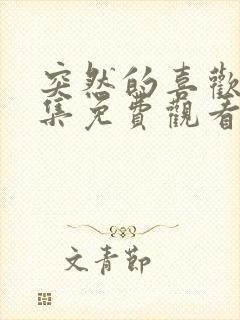 突然的喜歡
集免費觀看
文青節